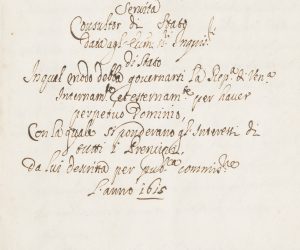 Servita
Consultor di Stato
data agl' Eccmi Sri Inquisri
di Stato
In qual modo debba governarsi la Repca di Vena
Internamte et esternamte per haver
perpetuo Dominio
Con la quale si ponderano gl'Interessi di
tutti i Prencipi
da lui descritta per pubca commisne
L'anno 1615